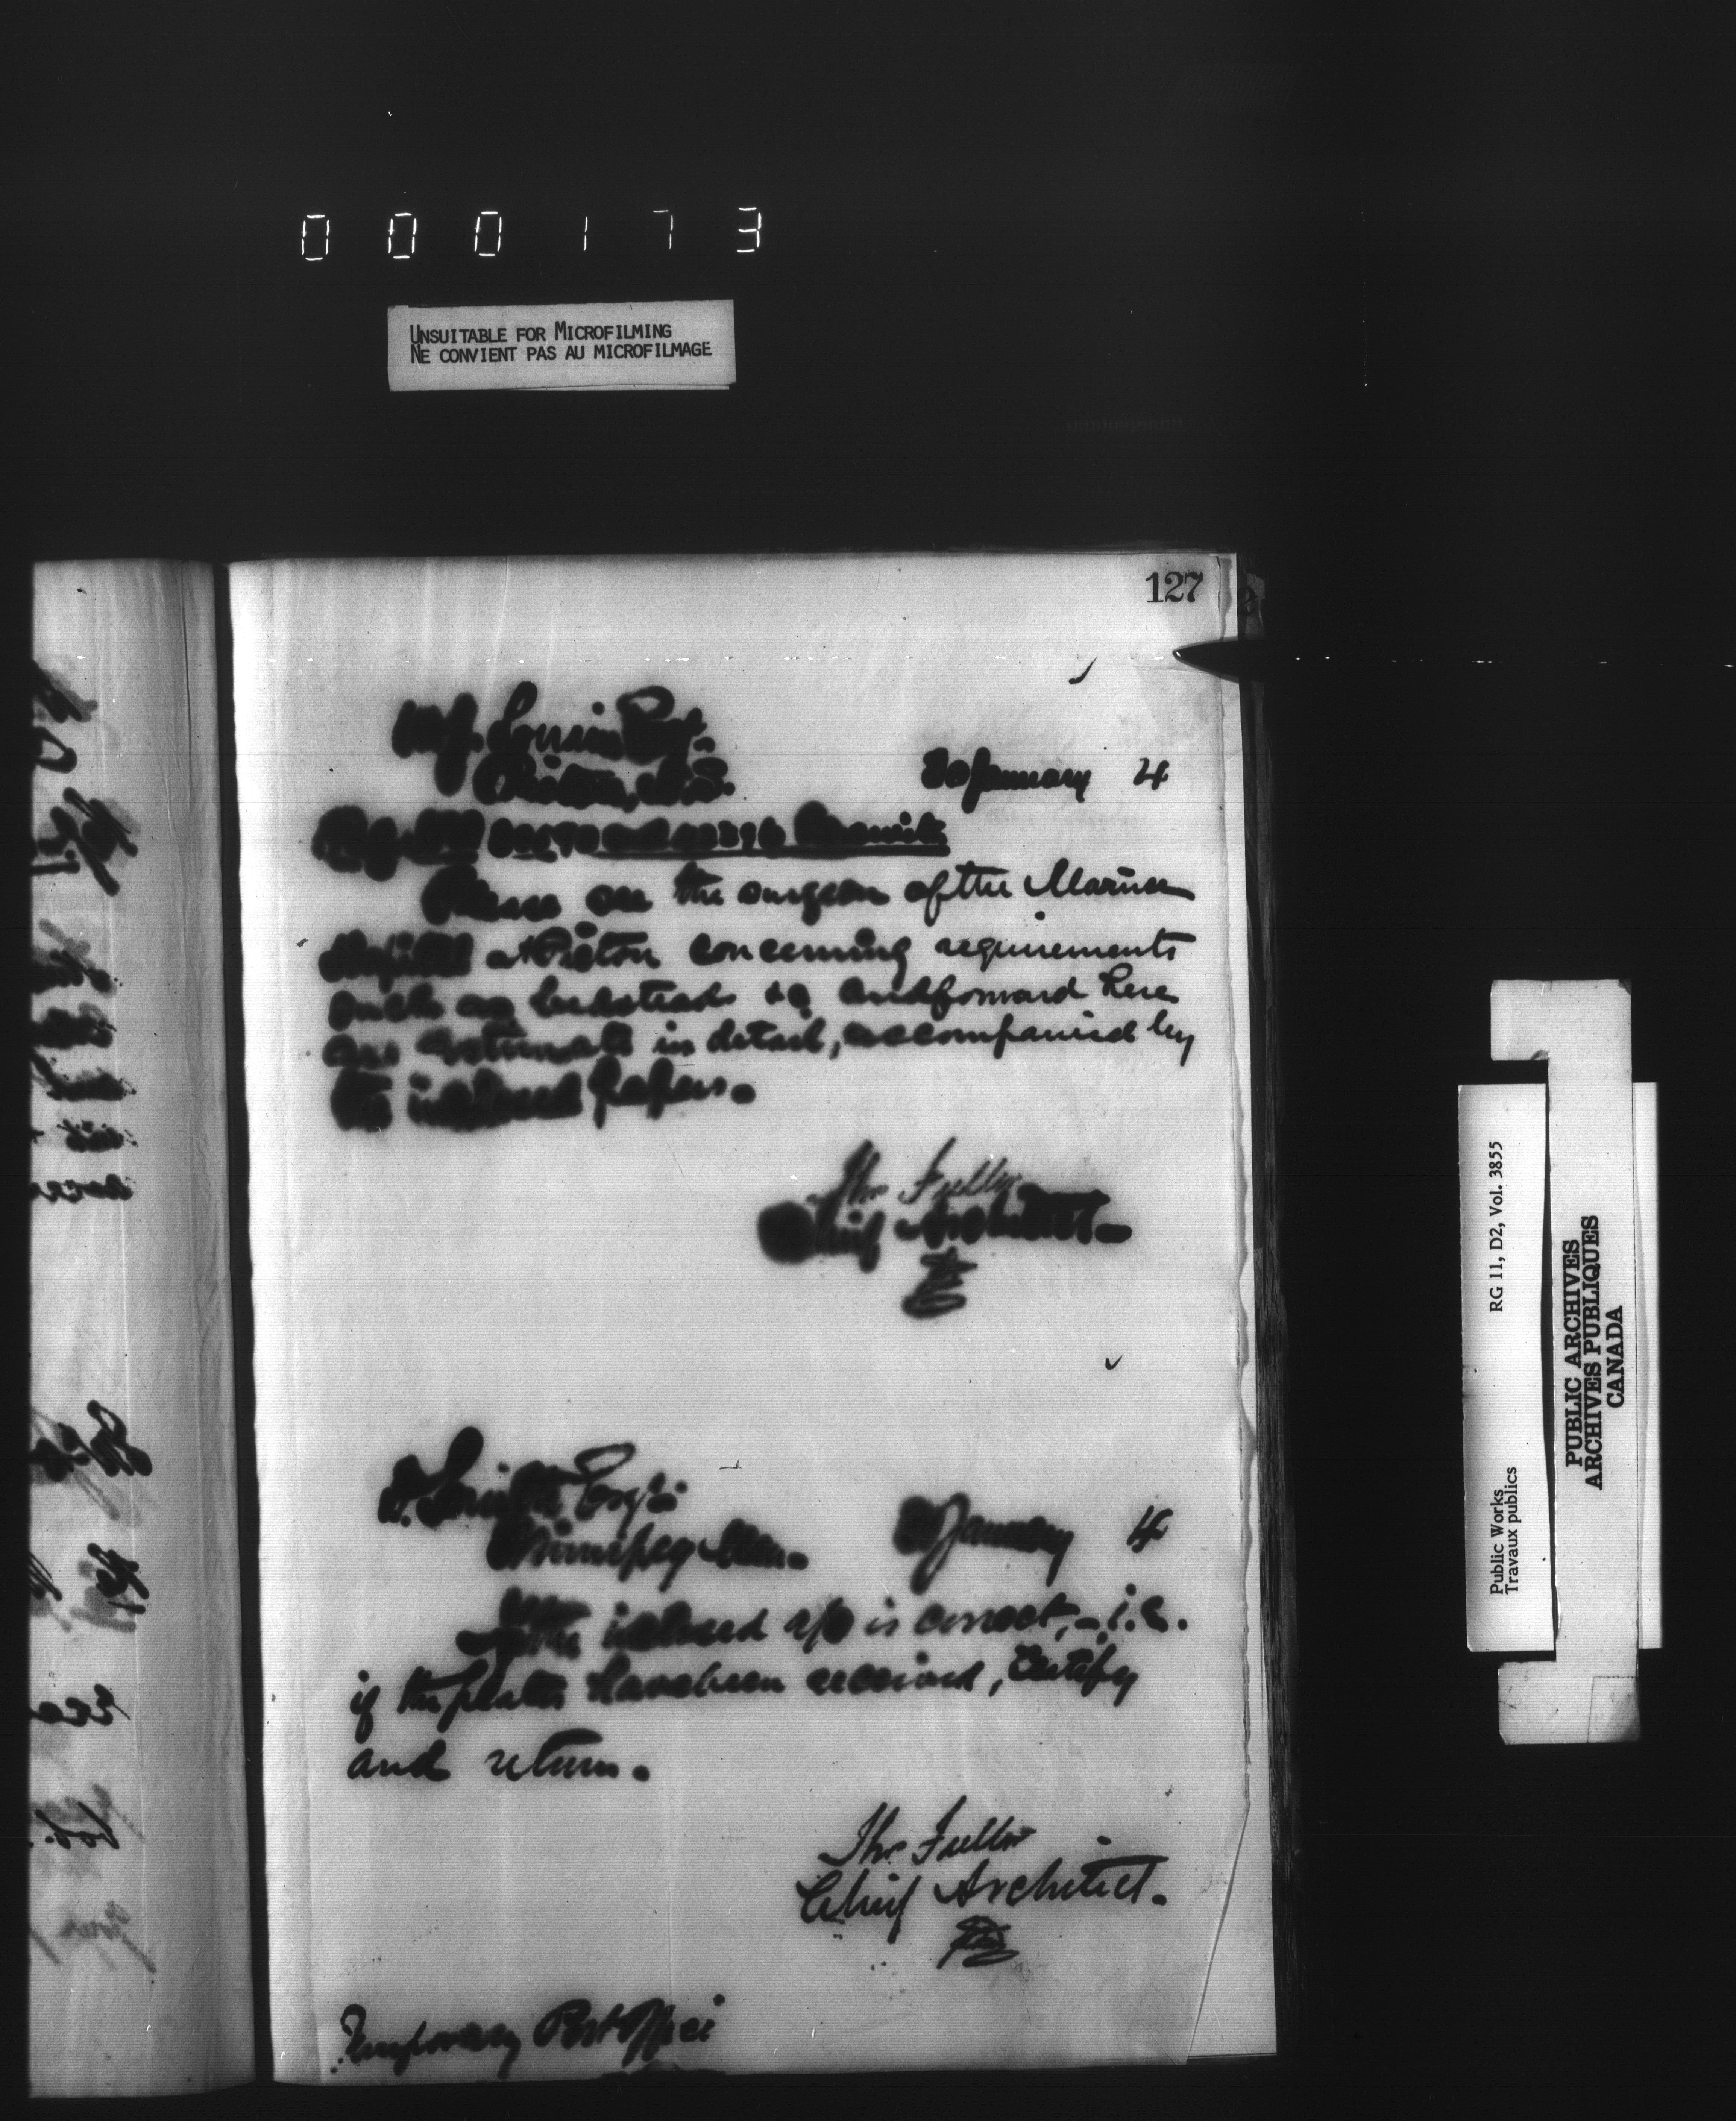 000173
UNSUITABLE FOR MICROFILMING
NE CONVIENT PAS AU MICROFILMAGE
127
Esqr.
Pictou, N.S.
30 January 4
Please see the surgeon of the Marine
Hospital at Pictou concerning requirements
such as bedsteads &c and forward here
an estimate in detail, accompanied by
the inclosed papers.
Thos Fuller
Chief Architect.
D. Smith Esqr.
Winnipeg Man.
January 4
If the inclosed a/c is correct, - i.e.
if the plates have been received, certify
and return.
Thos Fuller
Chief Architect.
Temporary Post Office
RG 11, D2, Vol. 3855
Public Works
Travaux publics
PUBLIC ARCHIVES
ARCHIVES PUBLIQUES
CANADA